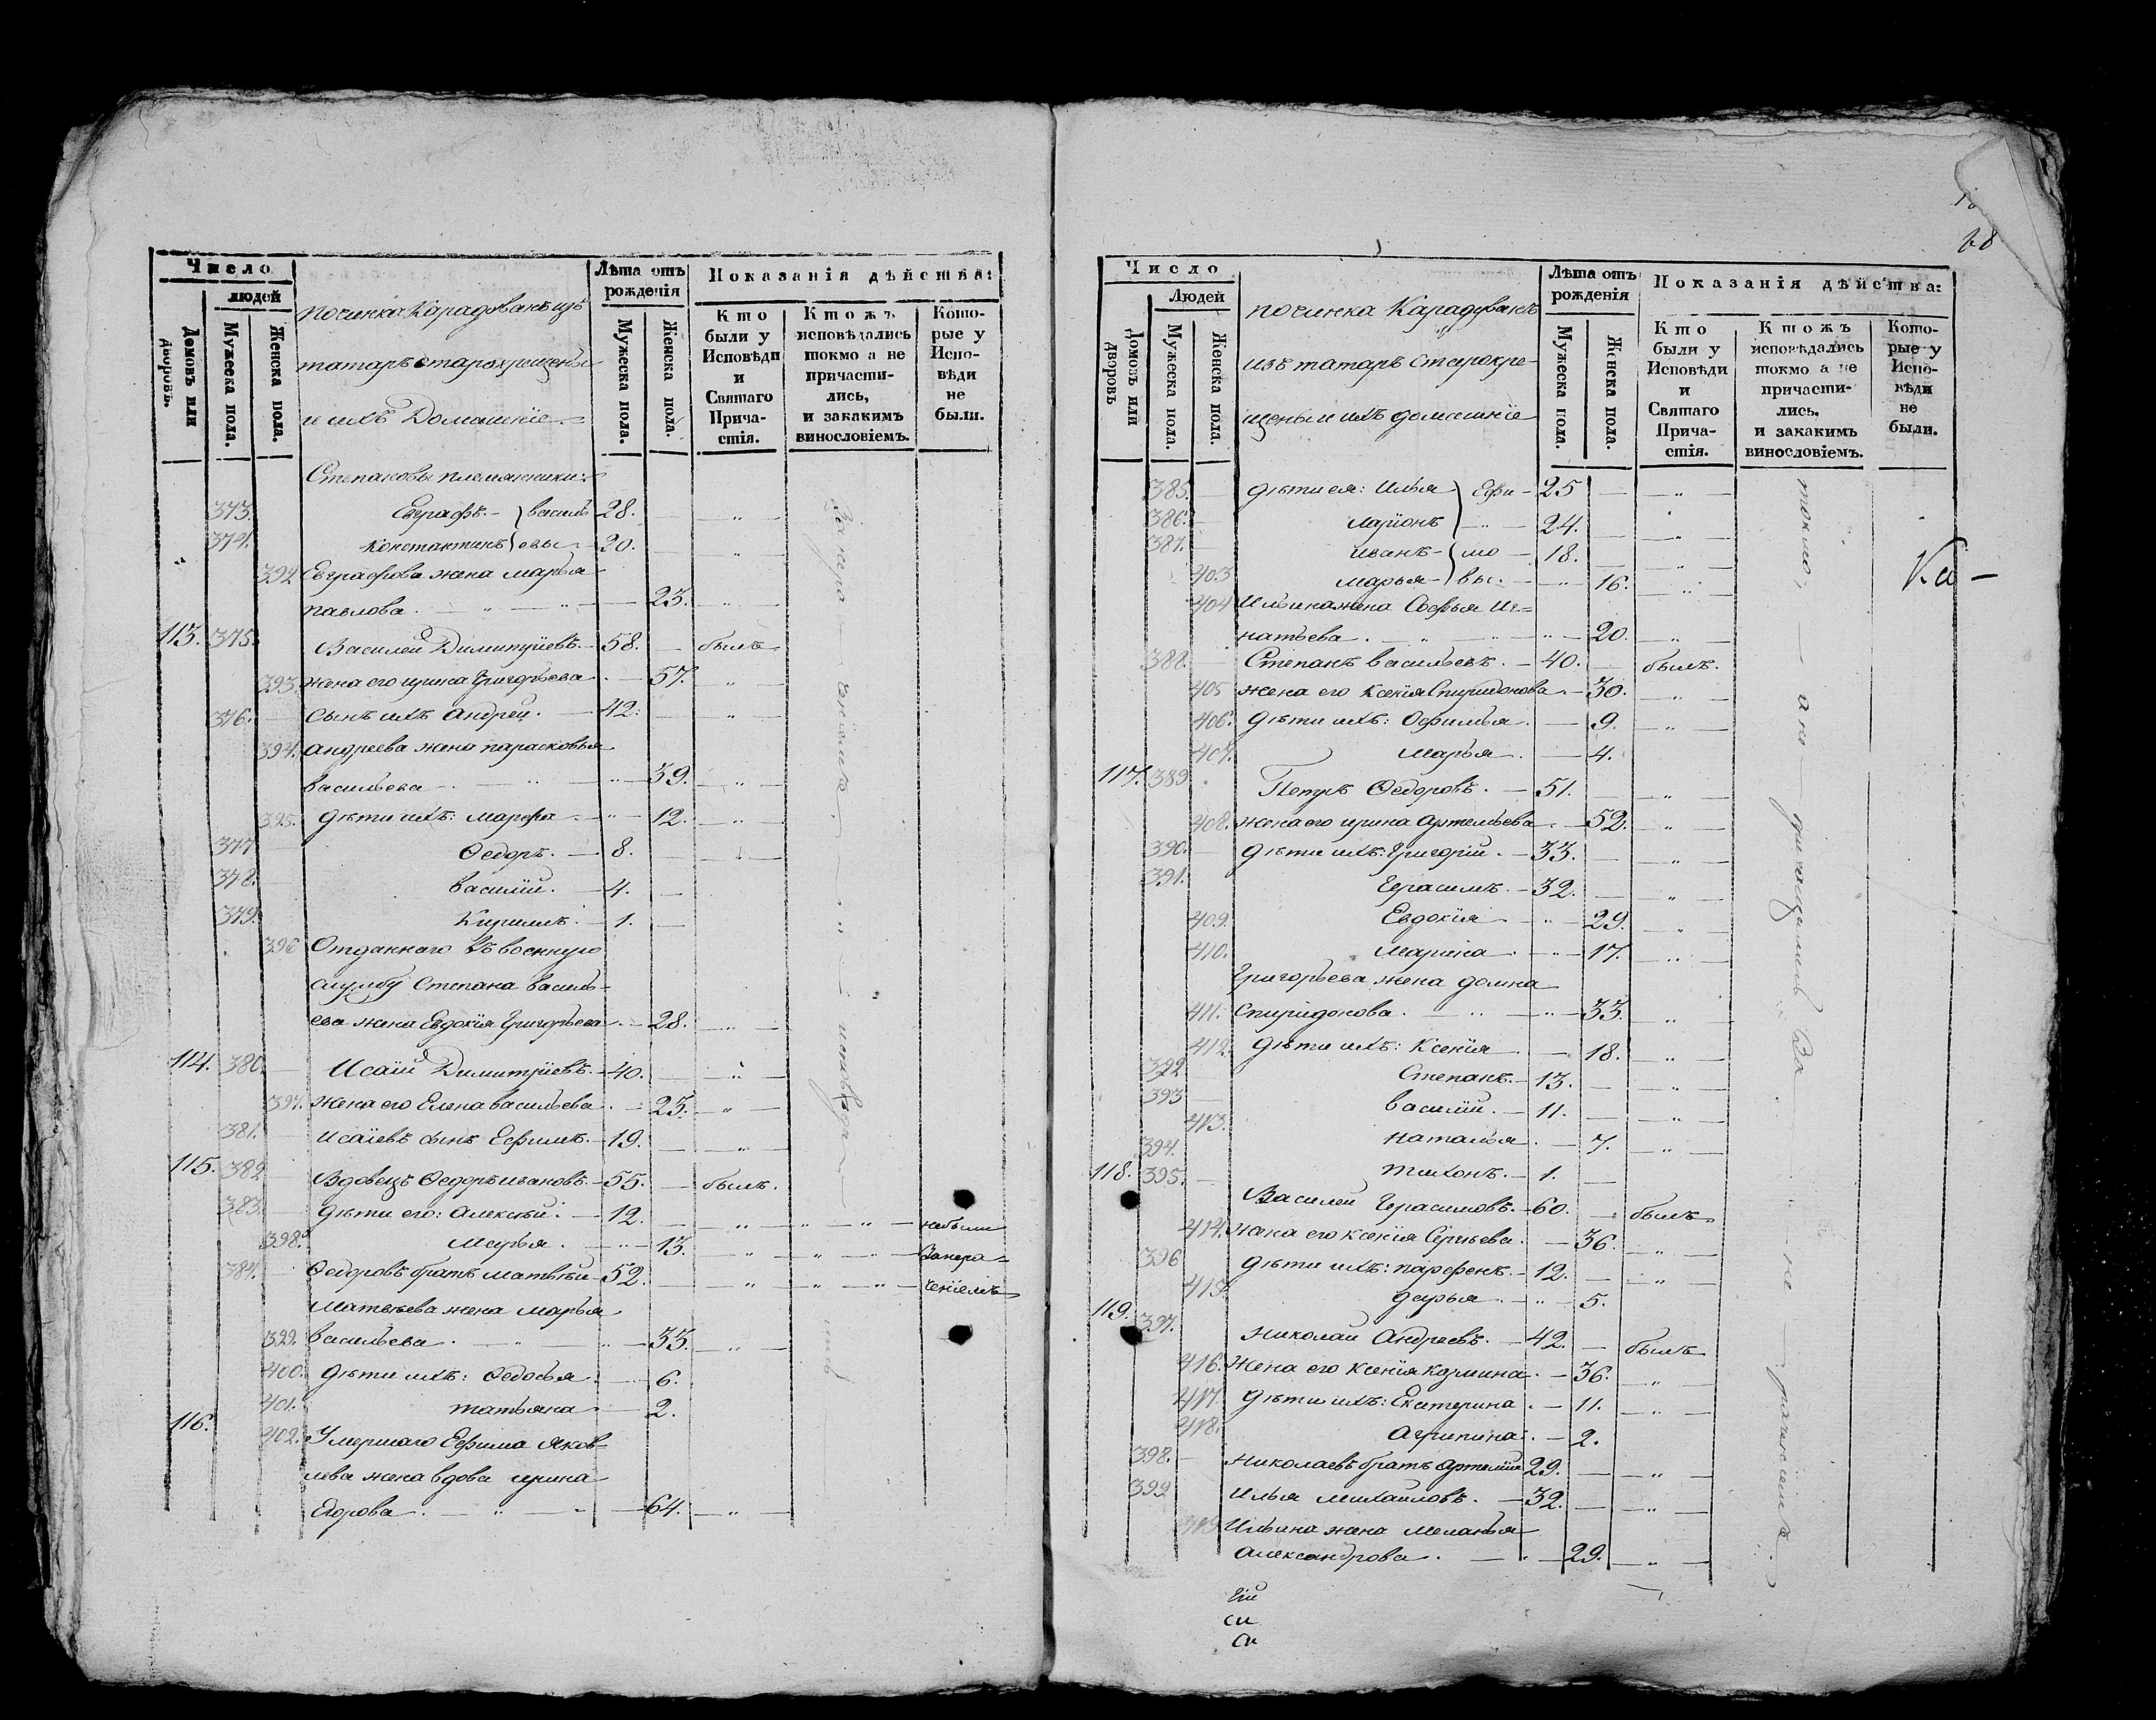 Число
людей
Домовъ или дворовъ.
Мужеска пола.
Женска пола.
починка Карадуванъ изъ
татаръ старокрещены
и ихъ Домашніе
Лѣта отъ рожденія
Мужеска пола.
Женска пола.
Показанія дѣйства:
Кто были у Исповѣди и Святаго Причастія.
Ктожъ исповѣдались токмо а не причастились, и закакимъ винословіемъ.
Которые у Исповѣди не были.
Степановы племянники:
373. Евграфъ. } василь 28. „
374. Константинъ } евы 20. „
392 Евграфова жена марья
павлова. „ „ 23. „
113. 375. Василей Димитріевъ. 58. былъ
393. жена его ирина Григорьева. 57. „
376. сынъ ихъ Андрей. 42. „
394. андреева жена парасковья
васильева „ „ 39. „
395. дѣти ихъ: марфа „ 12. „
377 Ѳедоръ. 8. „
378. василій. 4.
379. Кирилъ. 1.
396 Отданнаго въ военную
службу Степана василь-
ева жена Евдокія Григорьева. 28. „
114. 380. Исаій Димитріевъ. 40. „
397. жена его Елена васильева. 23. „
381. исаіевъ сынъ Ефимъ. 19. „
115. 382 Вдовецъ Ѳедоръ ивановъ. 55. былъ.
383. дѣти его: алексѣй. 12. „ „ „ небыли
398. Марья. „ 13. „ „ „ Занера-
384. Ѳедоровъ братъ матвѣй 52. „ „ „ ченіемъ
Матвѣева жена марья
399. васильева. „ „ 33. „
400. дѣти ихъ: Ѳедосья. 6.
401. татьяна 2.
116. 402. Умершаго Ефима Яков-
лева жена вдова ирина
Егорова. „ 64. „
68
Число
Людей
Домовъ или дворовъ
Мужеска пола.
Женска пола.
починка Карадуванъ
изъ татаръ старокре-
щены и ихъ домашніе
Лѣта отъ рожденія
Мужеска пола.
Женска пола.
Показанія дѣйства:
Кто были у Исповѣди и Святаго Причастія.
Ктожъ исповѣдались токмо а не причастились, и закакимъ винословіемъ.
Которые у Исповѣди не были.
385. дѣти ея: Илья } Ефи- 25 „
386. ларіонъ 24. „
387. иванъ } мо 18. „
403 марья } вы. „ 16. „
404 Ильина жена Софья Иг=
натьева. „ „ „ 20. „
388. Степанъ васильевъ. 40. былъ.
405 жена его Ксенія Спиридонова. 30. „
406. дѣти ихъ: Офимья. 9. „
407. Марья. 4.
117. 389. Петръ Ѳедоровъ. 51. „
408. жена его ирина артемьева. 52. „
390. дѣти ихъ: Григорій. 33. „
391. Герасимъ. 32. „
409. Евдокія „ 29. „
410. Марина. „ 17. „
Григорьева жена домна
411. Спиридонова. „ „ 33. „
412. дѣти ихъ: Ксенія. 18. „
392 Степанъ. 13. „
393 василій. 11. „
413. наталья. 7. „
394. тихонъ. 1.
118. 395. Василей Герасимовъ. 60. былъ
414. жена его ксенія Сергѣева. 36. „
396 дѣти ихъ: парфенъ. 12. „
415. дарья. „ 5.
119. 397. Николай Андреевъ. 42. былъ
416. жена его Ксенія Козмина. 36. „
417. дѣти ихъ: Екатерина. 11. „
418. Агрипина. 2.
398. Николаевъ братъ артемій 29. „
399 Илья михайловъ. 32. „
419 Ильина жена меланья
александрова. „ 29. „
Ка-